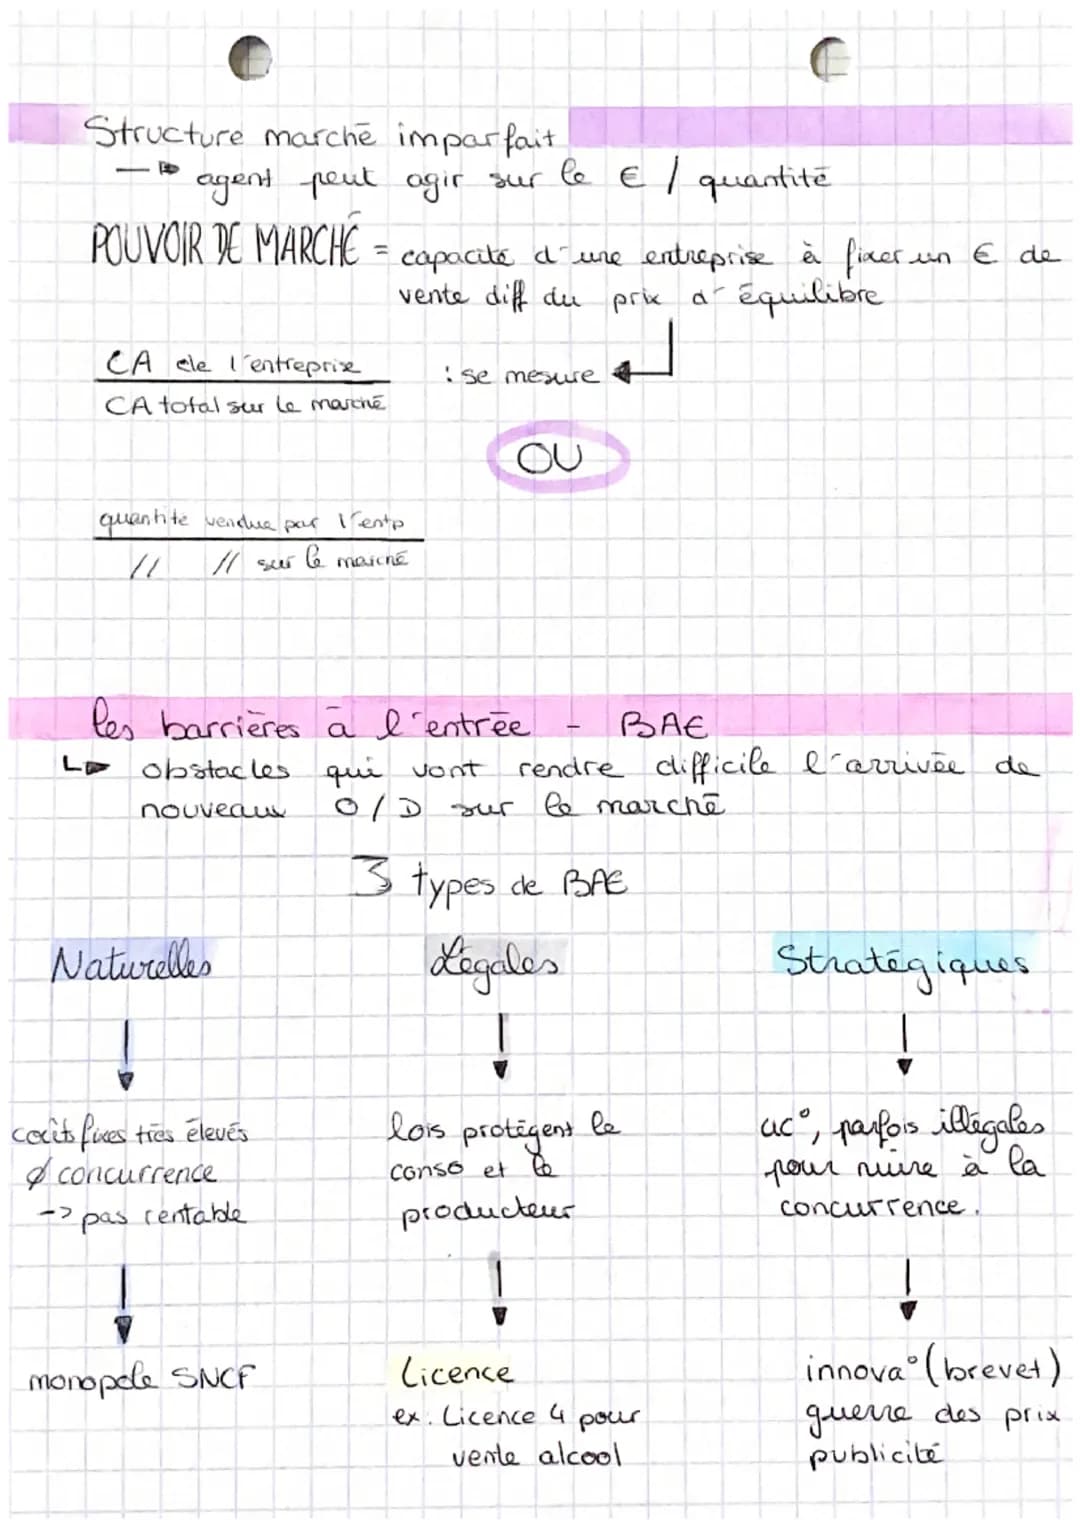 Structure marché imparfait
→ agent peut agir sur le € / quantité
POUVOIR DE MARCHÉ = capacité d'une entreprise à fixer un € de
vente diff du prix d'équilibre
CA de l'entreprise
: se mesure
CA total sur le marché
OU
quantité vendue par l'entp
// // sur le marché
les barrières à l'entrée - BAE
↳ obstacles qui vont rendre difficile l'arrivée de
nouveaux O/D sur le marché
3 types de BAE
Naturelles Légales Stratégiques
coûts fixes très élevés
Ø concurrence
-> pas rentable
monopole SNCF
lois protégent le
conso et le
producteur
Licence
ex: Licence 4 pour
vente alcool
ac°, parfois illégales
pour nuire à la
concurrence.
innova° (brevet)
guerre des prix
publicité